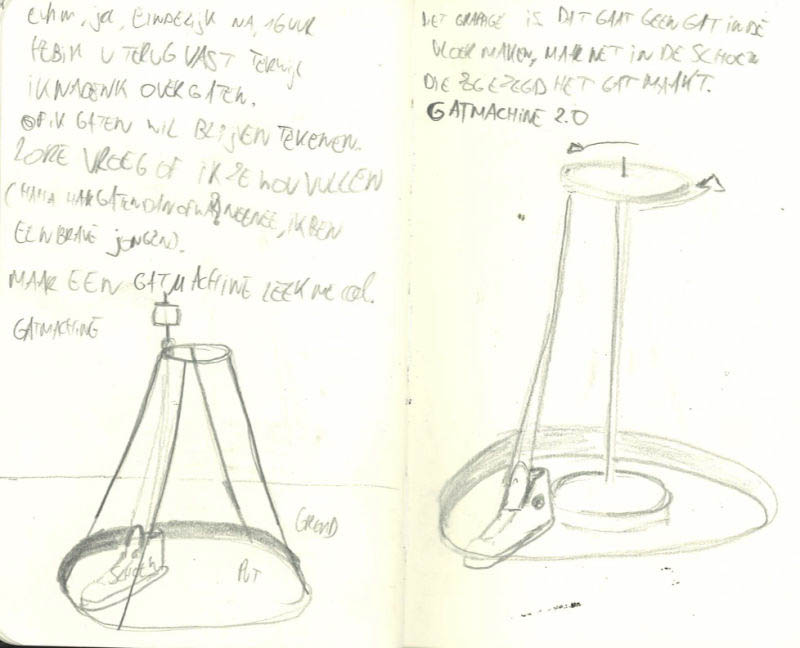 Euhm, ja, EINDELIJK NA 16 UUR
HEB IK U TERUG VAST TERWIJL
IK NADENK OVER GATEN.
OF IK GATEN WIL BLIJVEN TEKENEN.
LORE VROEG OF IK ZE WOU VULLEN
(HAHA NEENEE, IK BEN
EEN BRAVE jongen).
MAAR EEN GATMACHINE LEEK ME cool.
GATMACHINE
GROND
SCHOEN
PUT
HET GRAPPIGE IS DAT GAAT GEEN GAT IN DE
VLOER MAKEN, MAAR NET IN DE SCHOEN
DIE ZGEZEGD HET GAT MAAKT.
GATMACHINE 2.0